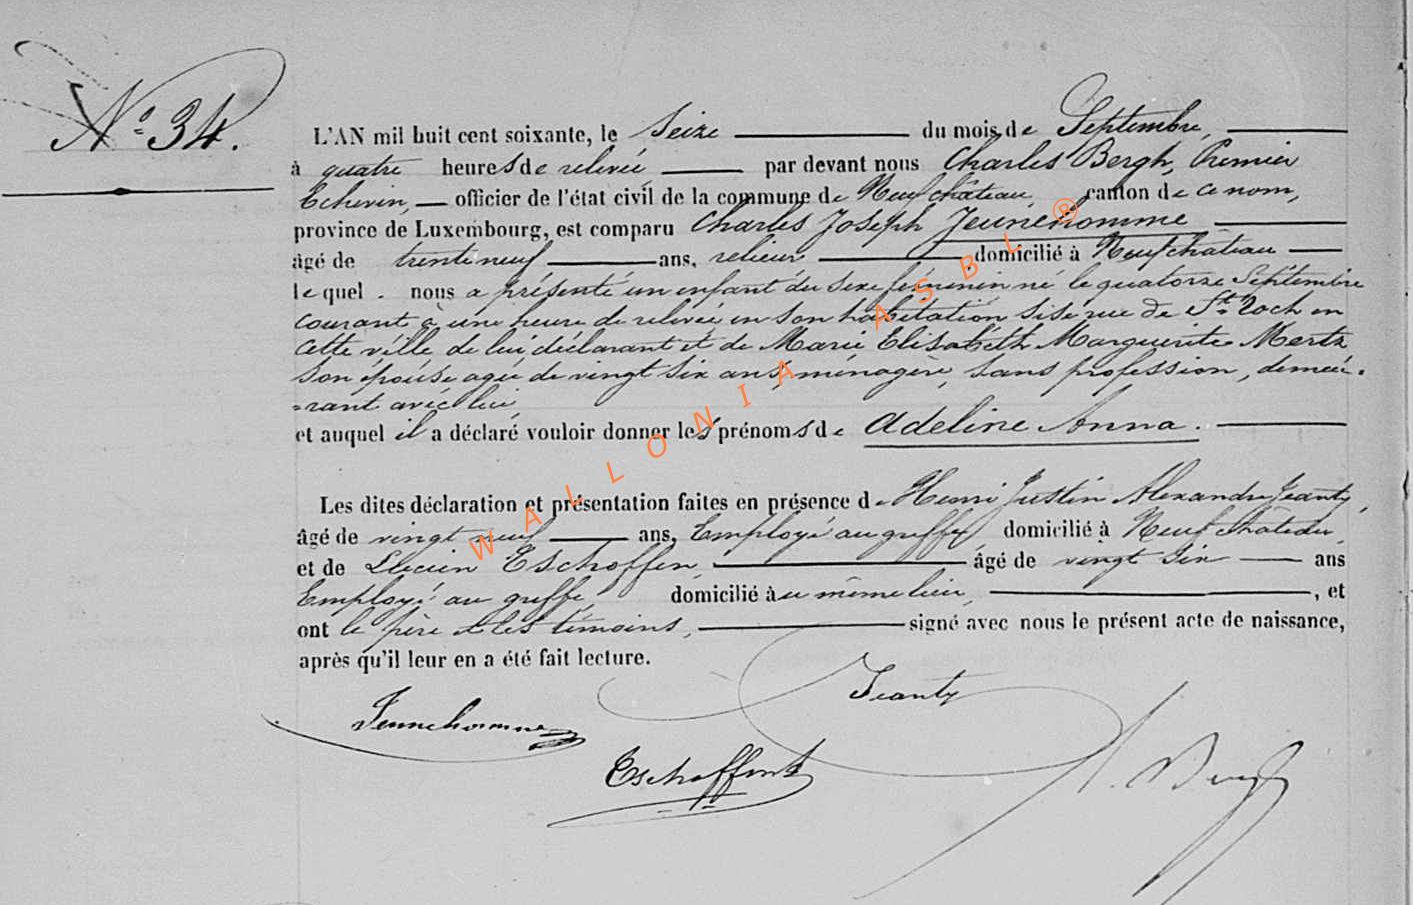 N° 34.
L'AN mil huit cent soixante, le Seize du mois de Septembre,
à quatre heures de relevée par devant nous Charles Bergh, Premier
Echevin, officier de l'état civil de la commune de Neufchâteau, canton de ce nom,
province de Luxembourg, est comparu Charles Joseph Jeunehomme
âgé de trente neuf ans, relieur domicilié à Neufchâteau
lequel nous a présenté un enfant du sexe féminin né le quatorze Septembre
courant à une heure de relevée en son habitation sise rue de St. Roch en
cette ville de lui déclarant et de Marie Elisabeth Marguerite Mertz
son épouse agée de vingt six ans, ménagère, sans profession, demeu-
-rant avec lui
et auquel il a déclaré vouloir donner les prénoms de Adeline Anna.
Les dites déclaration et présentation faites en présence de Henri Justin Alexandre Jeanty,
âgé de vingt neuf ans, Employé au greffe domicilié à Neufchâteau,
et de Lucien Eschoffen, âgé de vingt six ans
Employé au greffe, domicilié au même lieu, , et
ont le père et les témoins, signé avec nous le présent acte de naissance,
après qu'il leur en a été fait lecture.
Jeanty
Jeunehomme
Eschoffen
Bergh
WALLONIA ASBL ®